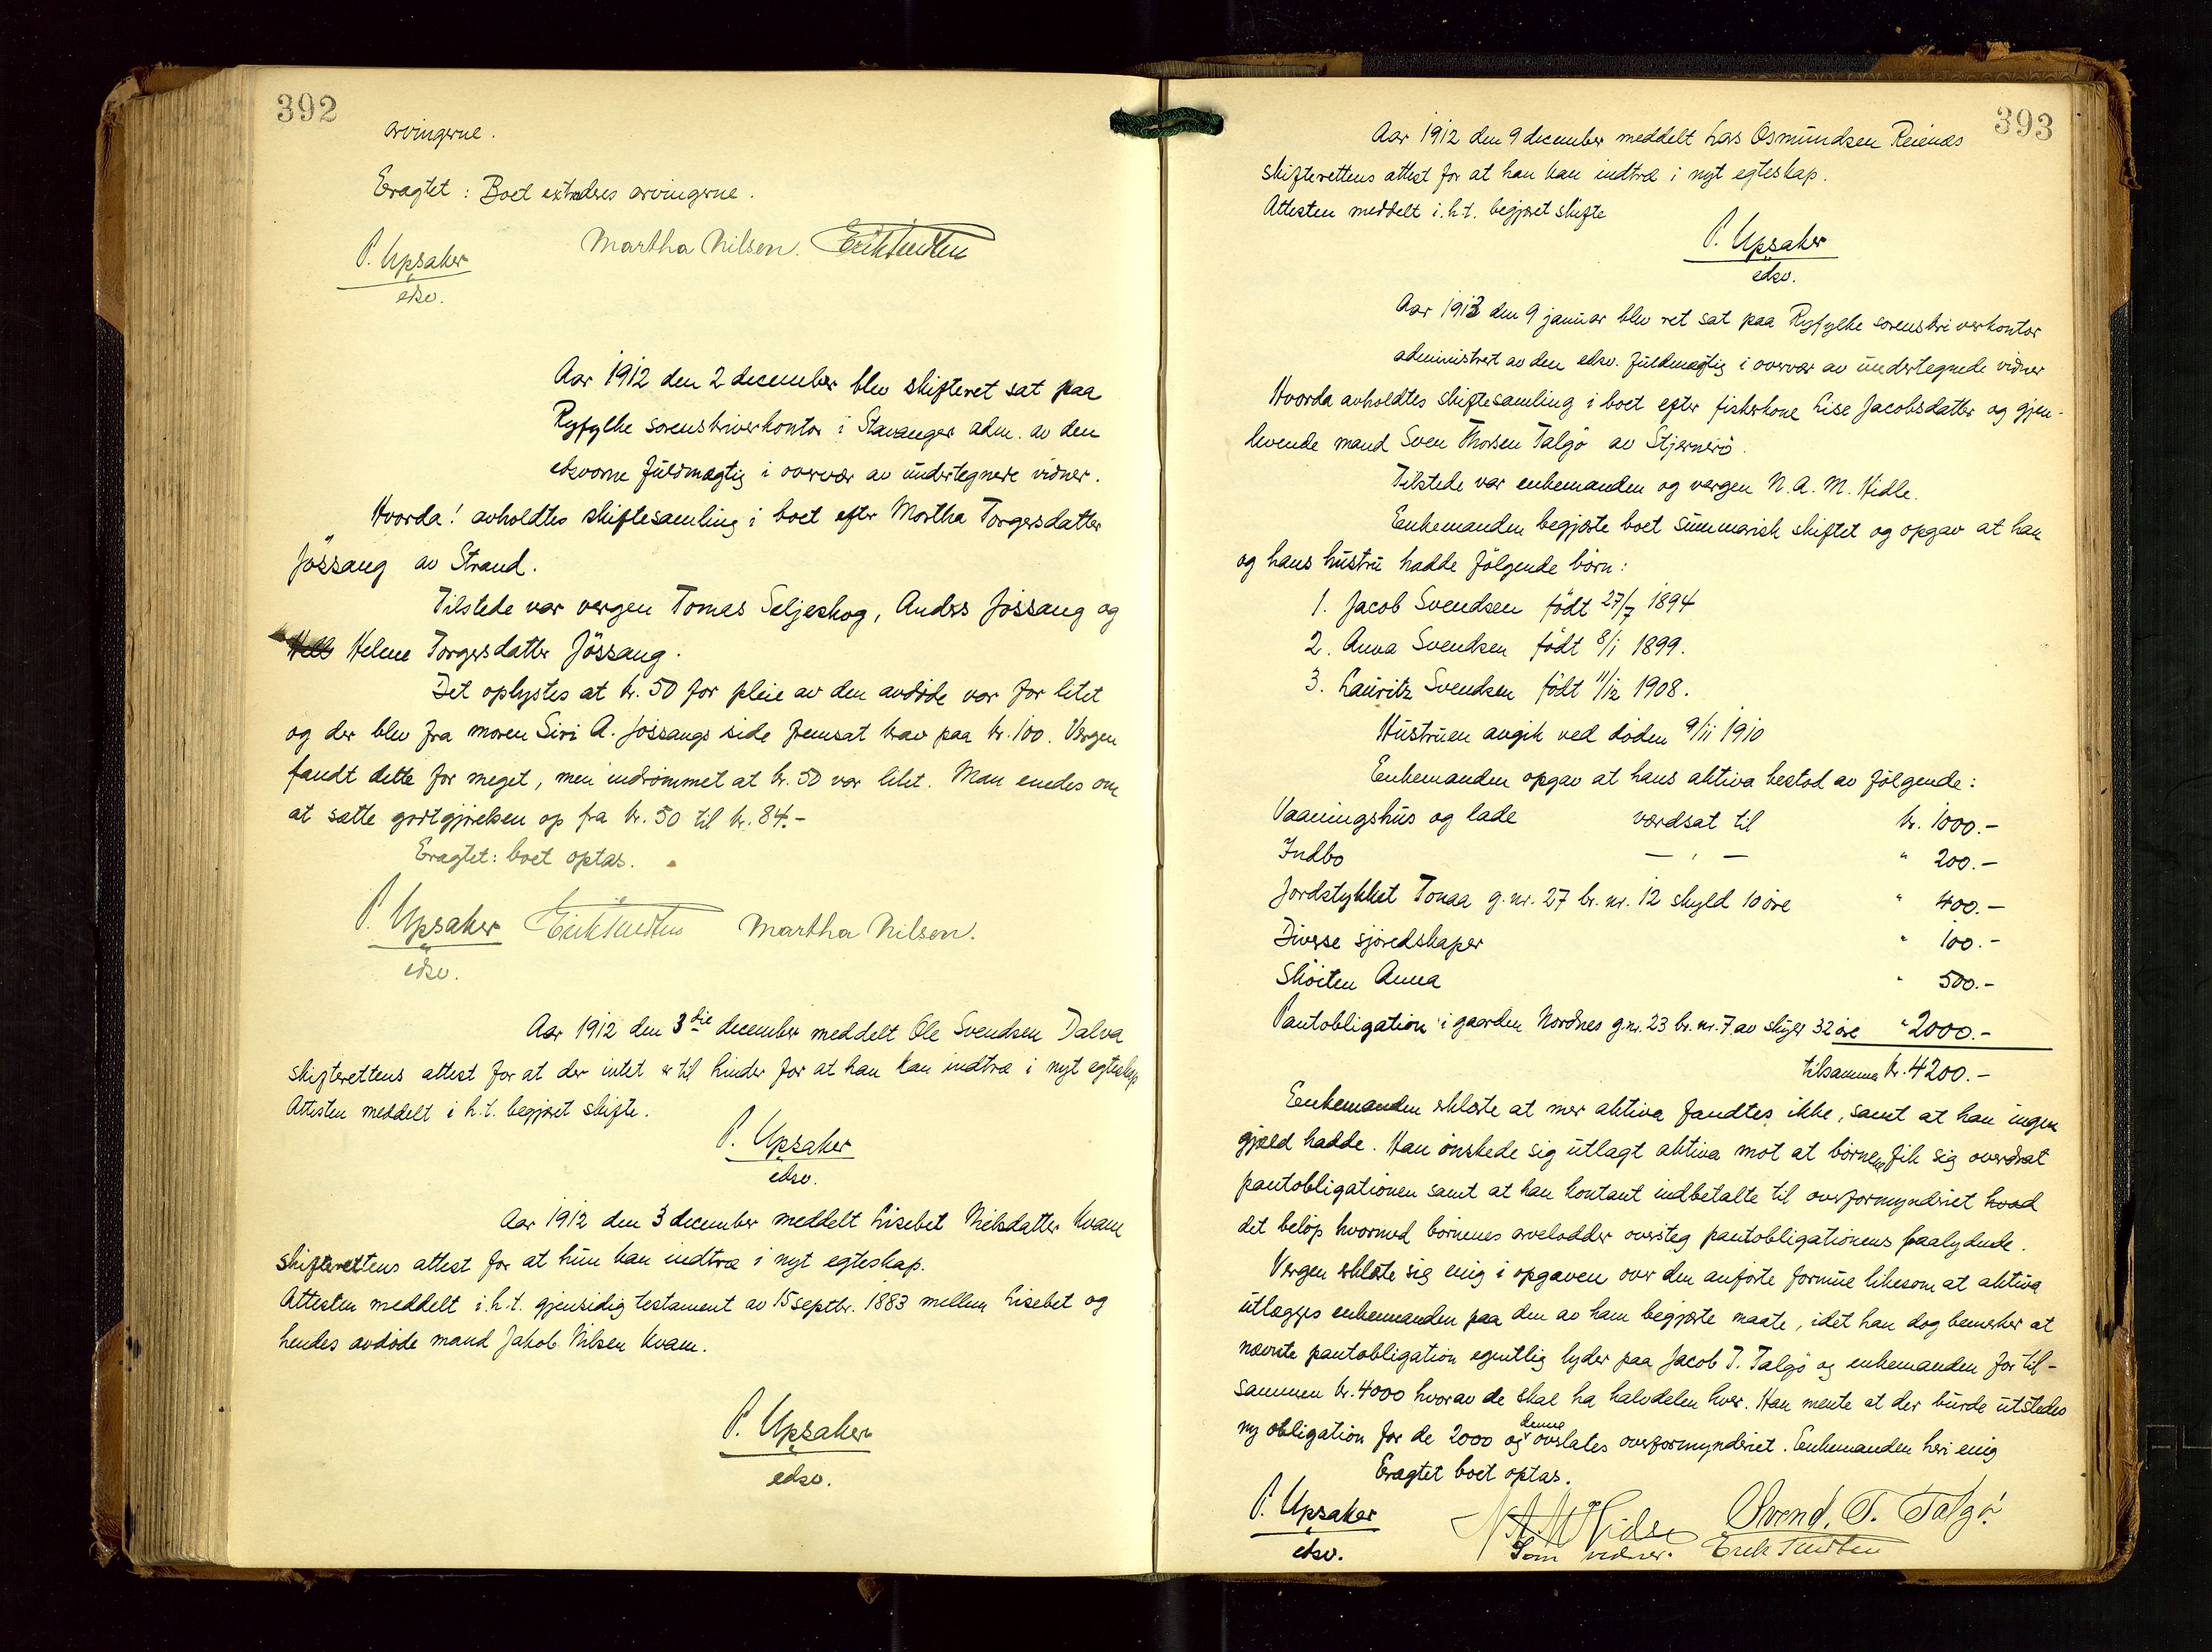 392
arvingerne.
Eragtet: Boet extraderes arvingerne.
Martha Nilsen.
P. Upsaker
edsv.
Aar 1912 den 2 december blev skifteret sat paa
Ryfylke sorenskriverkontor i Stavanger adm. av den
edsvorne fuldmægtig i overvær av undertegnede vidner.
Hvorda! avholdtes skiftesamling i boet efter Martha Torgersdatter
Jössang av Strand.
Tilstede var vergen Tomas Seljeskog, Anders Jössang og
Helene Torgersdatter Jössang.
Det oplystes at kr. 50 for pleie av den avdöde var for litet
og der blev fra moren Siri A. Jössangs side fremsat krav paa kr. 100. Vergen
fandt dette for meget, men indrömmet at kr. 50 var litet. Man enedes om
at sætte godtgjörelsen op fra kr. 50 til kr. 84.-
Eragtet: boet optas.
P. Upsaker Martha Nilsen.
edsv.
Aar 1912 den 3die december meddelt Ole Svendsen Dalva
skifterettens attest for at der intet er til hinder for at han kan indtræ i nyt egteskap
Attesten meddelt i h.t. begjæret skifte.
P. Upsaker
edsv.
Aar 1912 den 3 december meddelt Lisebet Nielsdatter Kvam
skifterettens attest for at hun kan indtræ i nyt egteskap.
Attesten meddelt i.h.t. gjensidig testament av 15 septbr. 1883 mellem Lisebet og
hendes avdöde mand Jakob Nilsen Kvam.
P. Upsaker
edsv.
393
Aar 1912 den 9 december meddelt Lars Osmundsen Reienes
skifterettens attest for at han kan indtræ i nyt egteskap.
Attesten meddelt i.h.t. begjæret skifte
P. Upsaker
edsv.
Aar 1913 den 9 januar blev ret sat paa Ryfylke sorenskriverkontor
administrert av den edsv. fuldmægtig i overvær av undertegnede vidner
Hvorda avholdtes skiftesamling i boet efter fiskerkone Lise Jacobsdatter og gjen-
levende mand Sven Thorsen Talgö av Stjernerö.
Tilstede var enkemanden og vergen N. A. M. Hidle.
Enkemanden begjærte boet summarisk skiftet og opgav at han
og hans hustru hadde fölgende börn:
1. Jacob Svendsen födt 27/7 1894
2. Anna Svendsen födt 8/1 1899.
3. Lauritz Svendsen födt 11/12 1908.
Hustruen avgik ved döden 9/11 1910
Enkemanden opgav at hans aktiva bestod av fölgende:
Vaaningshus og lade værdsat til kr. 1000.-
Indbo — " — " 200.-
Jordstykket Tonaa g.nr. 27 br. nr. 12 skyld 10 öre " 400.-
Diverse sjöredskaper " 100.-
Sköiten Anna " 500.-
Pantobligation i gaarden Nordnes g.nr. 23 br. nr. 7 av skyld 32 öre " 2000.-
tilsammen kr. 4200.-
Enkemanden erklærte at mer aktiva fandtes ikke, samt at han ingen
gjæld hadde. Han önskede sig utlagt aktiva mot at börnene fik sig overdrat
pantobligationen samt at han kontant indbetalte til overformynderiet hvad
det belöp hvormed börnenes arvelodder oversteg pantobligationens paalydende.
Vergen erklærte sig enig i opgaven over den anförte formue likesom at aktiva
utlægges enkemanden paa den av ham begjærte maate, idet han dog bemerker at
nævnte pantobligation egentlig lyder paa Jacob T. Talgö og enkemanden for til-
sammen kr. 4000 hvorav de skal ha halvdelen hver. Han mente at der burde utstedes
ny obligation for de 2000 og denne overlates overformynderiet. Enkemanden heri enig
Eragtet boet optas.
P. Upsaker N A M Hidle Svend. T. Talgö
edsv. Som vidner.